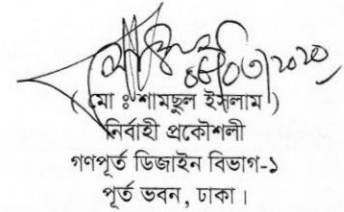 ( মো ঃ শামছুল ইসলাম )
নির্বাহী প্রকৌশলী
গণপূর্ত ডিজাইন বিভাগ-১
পূর্ত ভবন, ঢাকা।